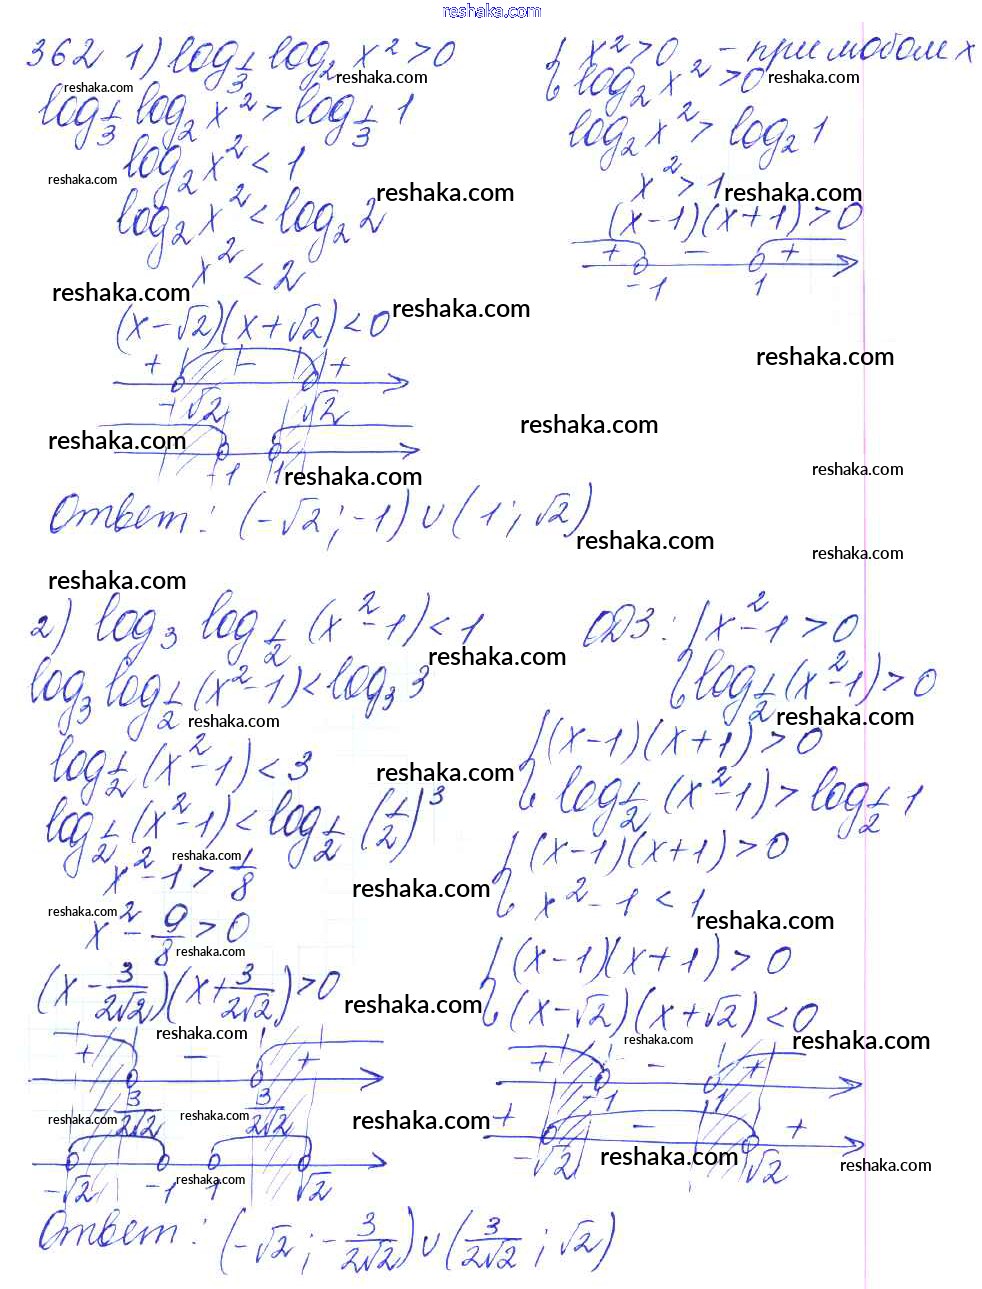 reshaka.com
362 1) log_{1/3} log_2 x² > 0
log_{1/3} log_2 x² > log_{1/3} 1
log_2 x² < 1
log_2 x² < log_2 2
x² < 2
(x-√2)(x+√2) < 0
+ - +
-√2 √2
-1 1
{ x² > 0 - при любом x
log_2 x² > 0
log_2 x² > log_2 1
x² > 1
(x-1)(x+1) > 0
+ - +
-1 1
Ответ: (-√2; -1) ∪ (1; √2)
2) log_3 log_{1/2} (x²-1) < 1
log_3 log_{1/2} (x²-1) < log_3 3
log_{1/2} (x²-1) < 3
log_{1/2} (x²-1) < log_{1/2} (1/2)³
x²-1 > 1/8
x² - 9/8 > 0
(x - 3/2√2)(x + 3/2√2) > 0
+ - +
-3/2√2 3/2√2
-√2 -1 1 √2
ОДЗ: { x²-1 > 0
log_{1/2} (x²-1) > 0
{ (x-1)(x+1) > 0
log_{1/2} (x²-1) > log_{1/2} 1
{ (x-1)(x+1) > 0
x²-1 < 1
{ (x-1)(x+1) > 0
(x-√2)(x+√2) < 0
+ - +
-1 1
+ - +
-√2 √2
Ответ: (-√2; -3/2√2) ∪ (3/2√2; √2)
reshaka.com